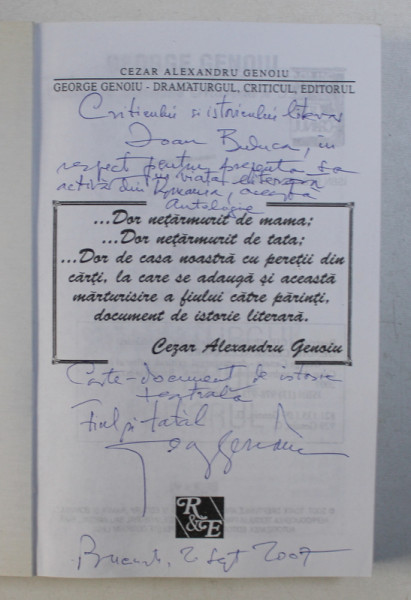 CEZAR ALEXANDRU GENOIU
GEORGE GENOIU - DRAMATURGUL, CRITICUL, EDITORUL
Criticului si istoricului literar
Ioan Buduca, în
respect pentru prezența sa
activă din viața literară
România, această
Antologie
...Dor neţărmurit de mama;
...Dor neţărmurit de tata;
...Dor de casa noastră cu pereţii din
cărţi, la care se adaugă şi această
mărturisire a fiului către părinţi,
document de istorie literară.
Cezar Alexandru Genoiu
Carte-document de istorie
teatrală
Fiul și tatăl
R&E
2 Sept 2007